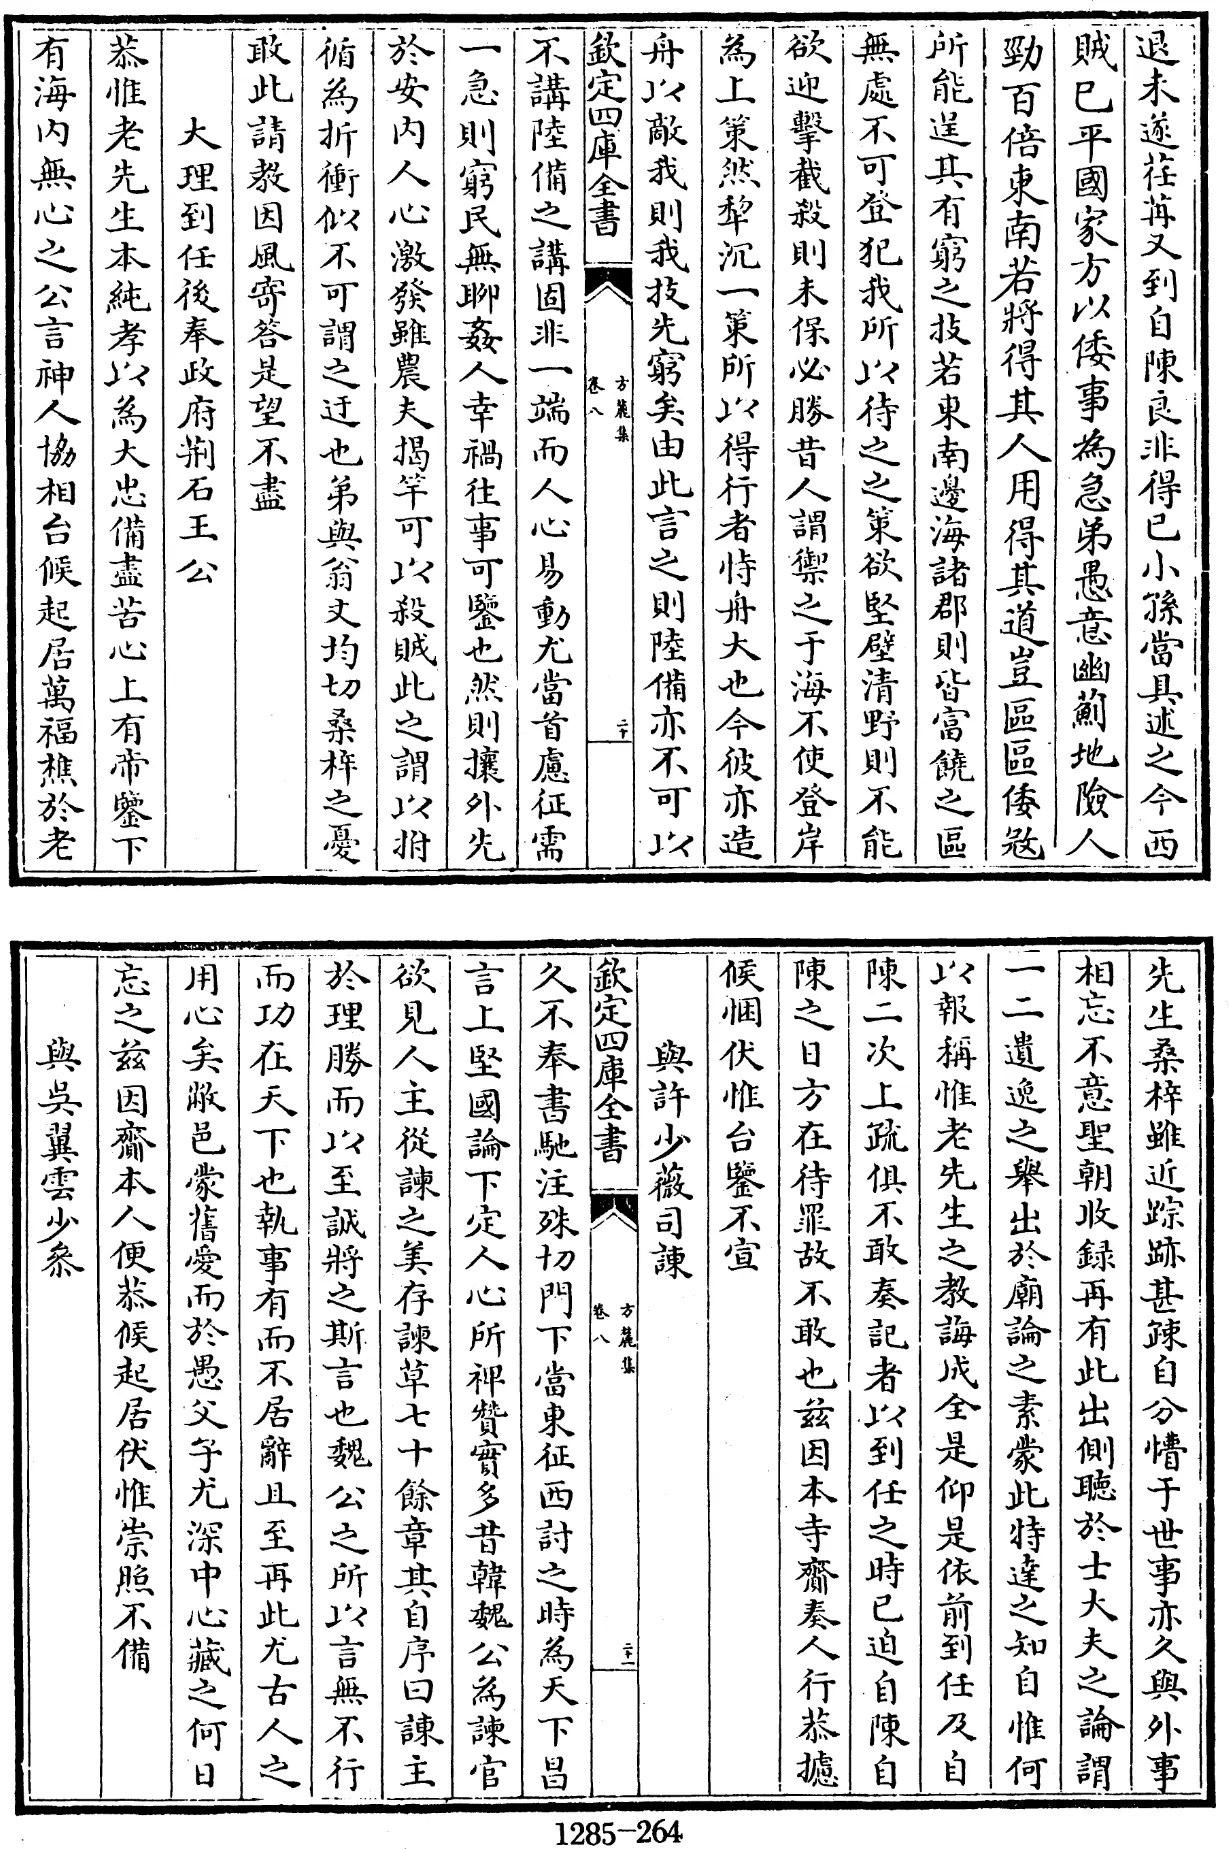 退未遂荏苒又到自陳良非得已小孫當具述之今西
賊已平國家方以倭事為急弟愚意幽薊地險人
勁百倍東南若將得其人用得其道豈區區倭敚
所能逞其有窮之技若東南邊海諸郡則皆富饒之區
無處不可登犯我所以待之之策欲堅壁清野則不能
欲迎擊截殺則未保必勝昔人謂禦之于海不使登岸
為上策然犂沉一策所以得行者恃舟大也今彼亦造
舟以敵我則我技先窮矣由此言之則陸備亦不可以
欽定四庫全書
方麓集
卷八
二十
不講陸備之講固非一端而人心易動尤當首慮征需
一急則窮民無聊姦人幸禍往事可鑒也然則攘外先
於安內人心激發雖農夫揭竿可以殺賊此之謂以拊
循為折衝似不可謂之迂也弟與翁丈均切桑梓之憂
敢此請教因風寄答是望不盡
大理到任後奉政府荊石王公
恭惟老先生本純孝以為大忠備盡苦心上有帝鑒下
有海內無心之公言神人協相台候起居萬福樵於老
先生桑梓雖近踪跡甚疎自分懵于世事亦久與外事
相忘不意聖朝收録再有此出側聴於士大夫之論謂
一二遺逸之舉出於廟論之素蒙此特達之知自惟何
以報稱惟老先生之教誨成全是仰是依前到任及自
陳二次上疏俱不敢奏記者以到任之時已迫自陳自
陳之日方在待罪故不敢也兹因本寺齎奏人行恭攄
候悃伏惟台鑒不宣
與許少薇司諫
欽定四庫全書
方麓集
卷八
二十一
久不奉書馳注殊切門下當東征西討之時為天下昌
言上堅國論下定人心所裨贊實多昔韓魏公為諫官
欲見人主從諫之美存諫草七十餘章其自序曰諫主
於理勝而以至誠將之斯言也魏公之所以言無不行
而功在天下也執事有而不居辭且至再此尤古人之
用心矣敝邑蒙舊愛而於愚父子尤深中心藏之何日
忘之兹因齎本人便恭候起居伏惟崇照不備
與吳翼雲少叅
1285-264